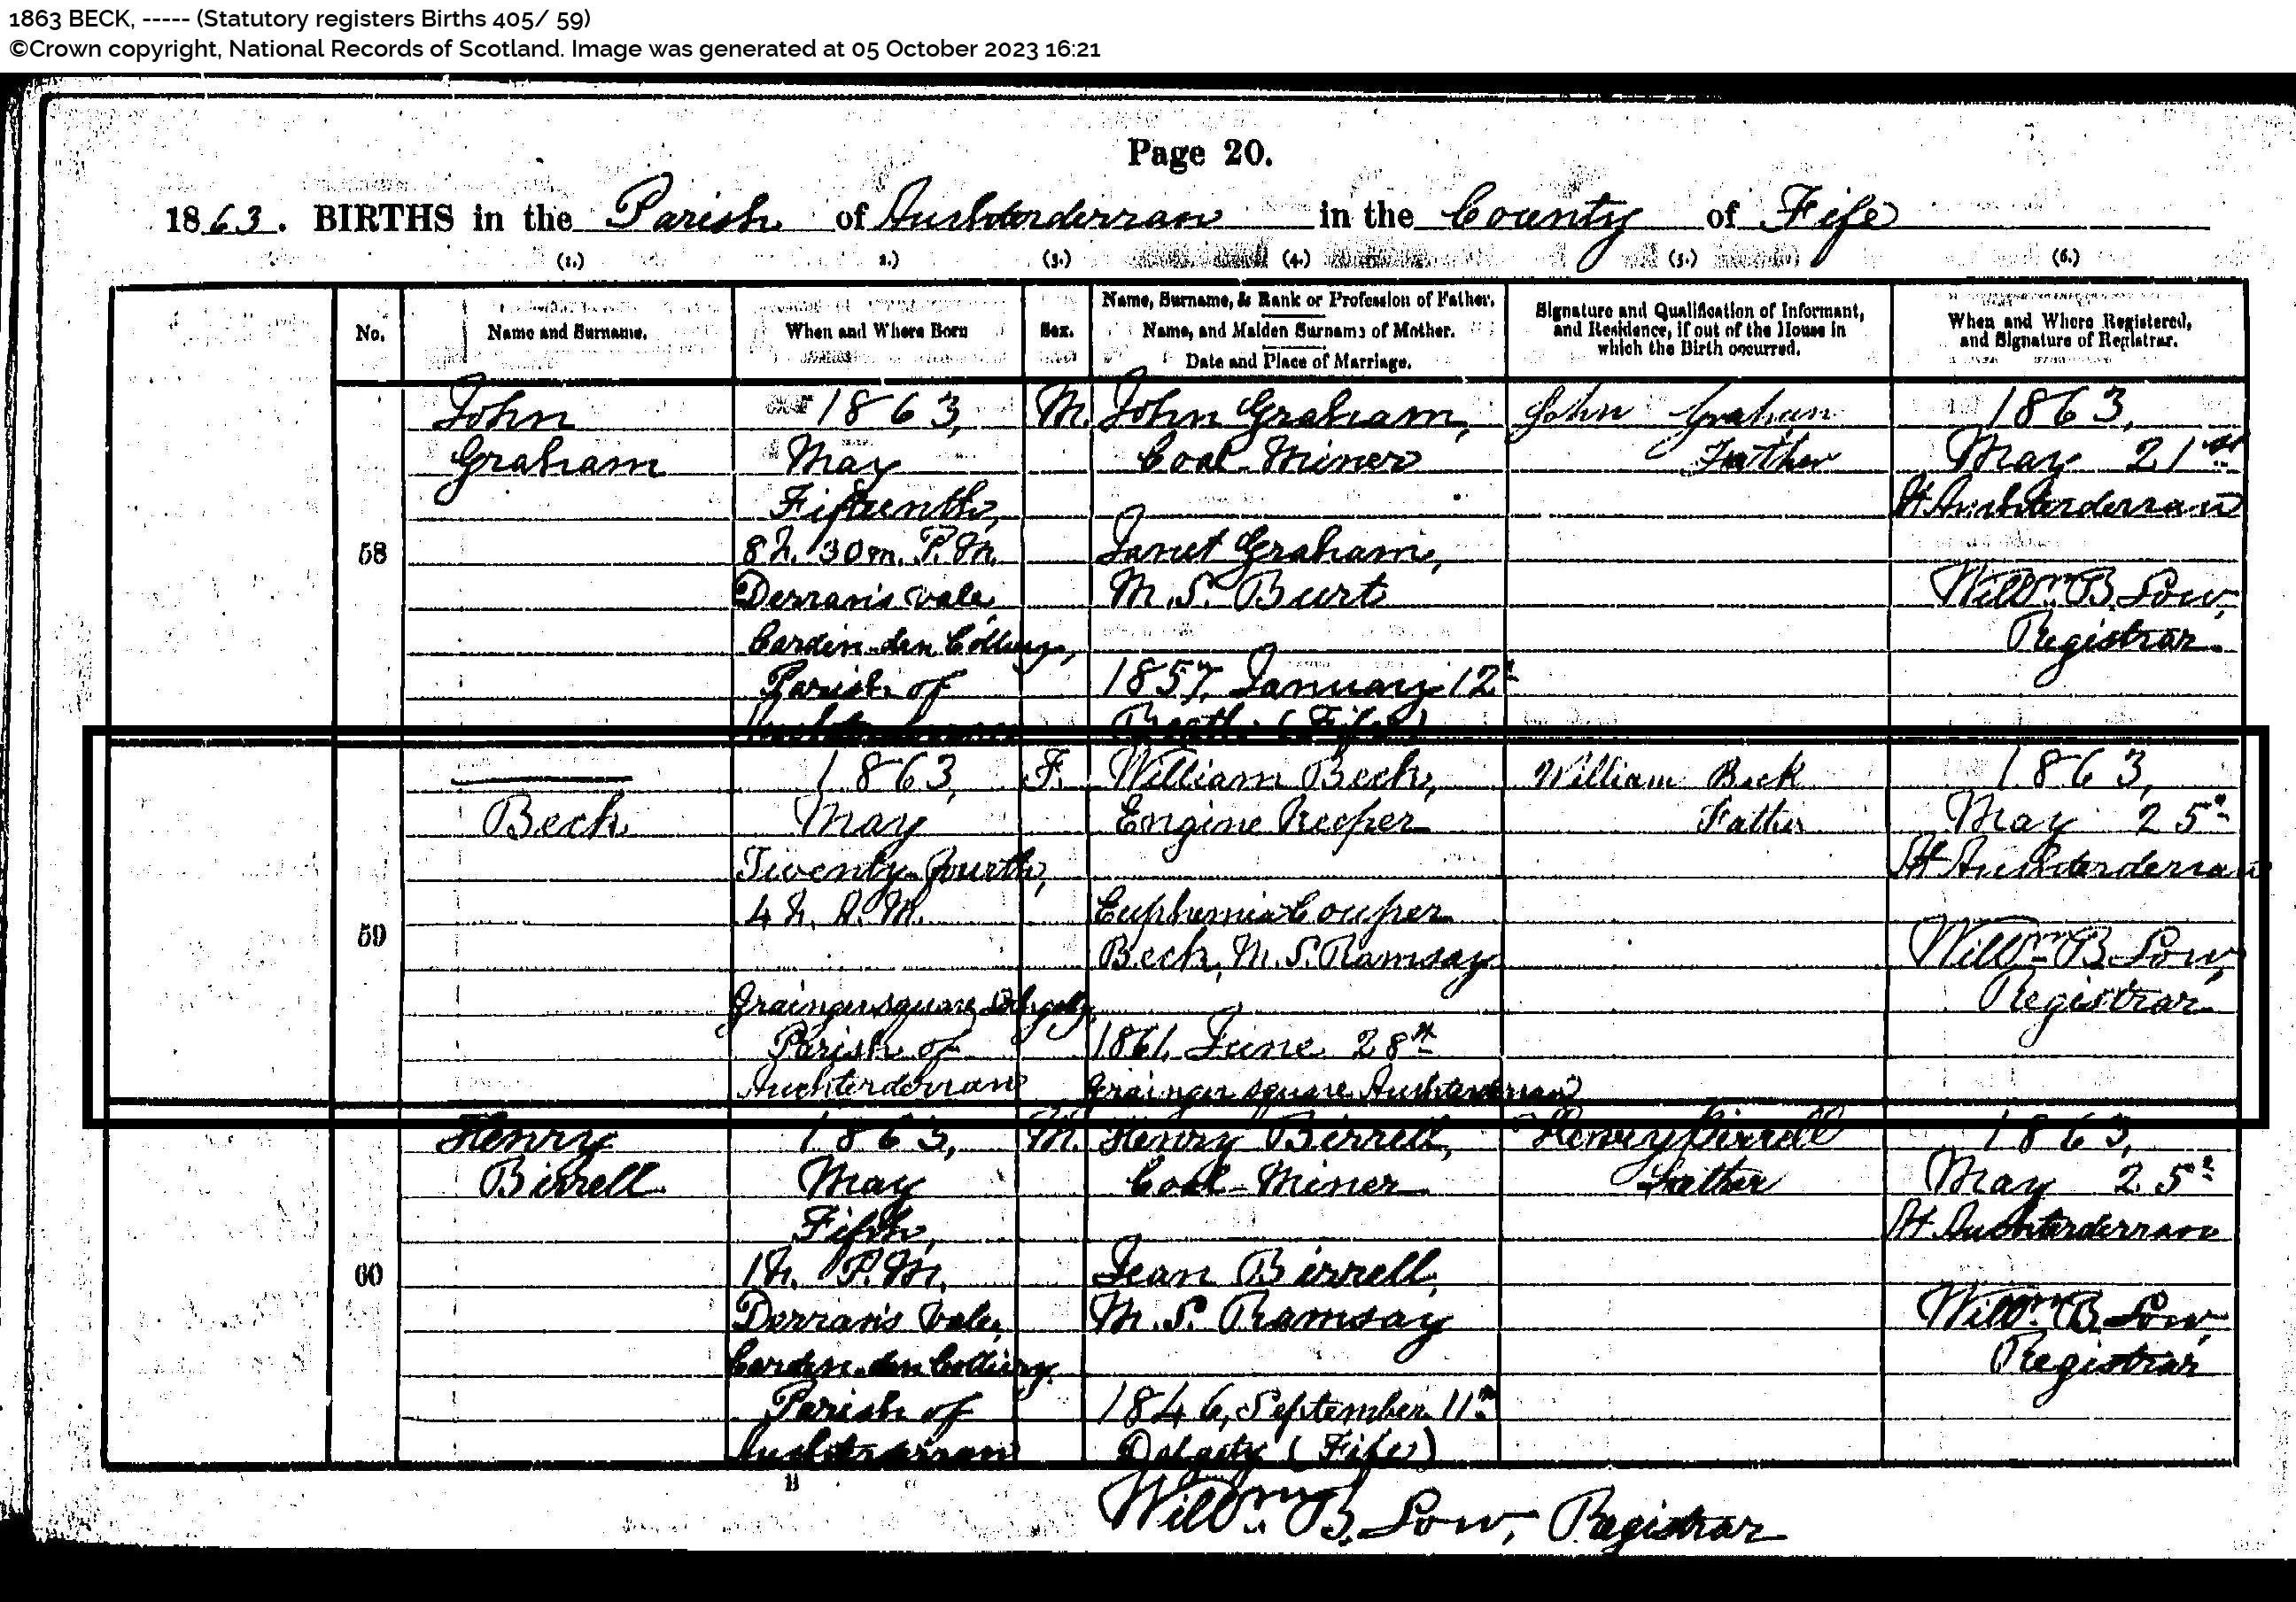 1863 BECK, ----- (Statutory registers Births 405/ 59)
©Crown copyright, National Records of Scotland. Image was generated at 05 October 2023 16:21
Page 20.
1863. BIRTHS in the Parish of Auchterderran in the County of Fife
(1.) 2.) (3.) (4.) (5.) (6.)
No.
Name and Surname.
When and Where Born
Sex.
Name, Surname, & Rank or Profession of Father.
Name, and Maiden Surname of Mother.
Date and Place of Marriage.
Signature and Qualification of Informant,
and Residence, if out of the House in
which the Birth occurred.
When and Where Registered,
and Signature of Registrar.
58
John
Graham
1863,
May
Fifteenth,
8h. 30m. P.M.
Derran's Vale,
Carden-den Colliery,
Parish of
Auchterderran
M.
John Graham,
Coal-Miner
Janet Graham,
M.S. Burt
1857, January 12th
Beath (Fife)
John Graham
Father
1863,
May 21st
At Auchterderran
Willm B. Low,
Registrar.
59
———
Beck
1863,
May
Twenty-fourth,
4h. A.M.
Grainger square, Lochgelly,
Parish of
Auchterderran
F.
William Beck,
Engine Keeper
Euphemia Couper
Beck, M.S. Ramsay
1861, June 28th
Grainger square Auchterderran
William Beck
Father
1863,
May 25th
At Auchterderran
Willm B. Low,
Registrar
60
Henry
Birrell
1863,
May
Fifth,
1h. P.M.
Derran's Vale,
Carden-den Colliery
Parish of
Auchterderran
M.
Henry Birrell,
Coal-Miner
Jean Birrell,
M.S. Ramsay
1846, September 11th
Dalgety (Fife)
Henry Birrell
Father
1863,
May 25th
At Auchterderran
Willm B. Low,
Registrar
B
Willm B. Low, Registrar